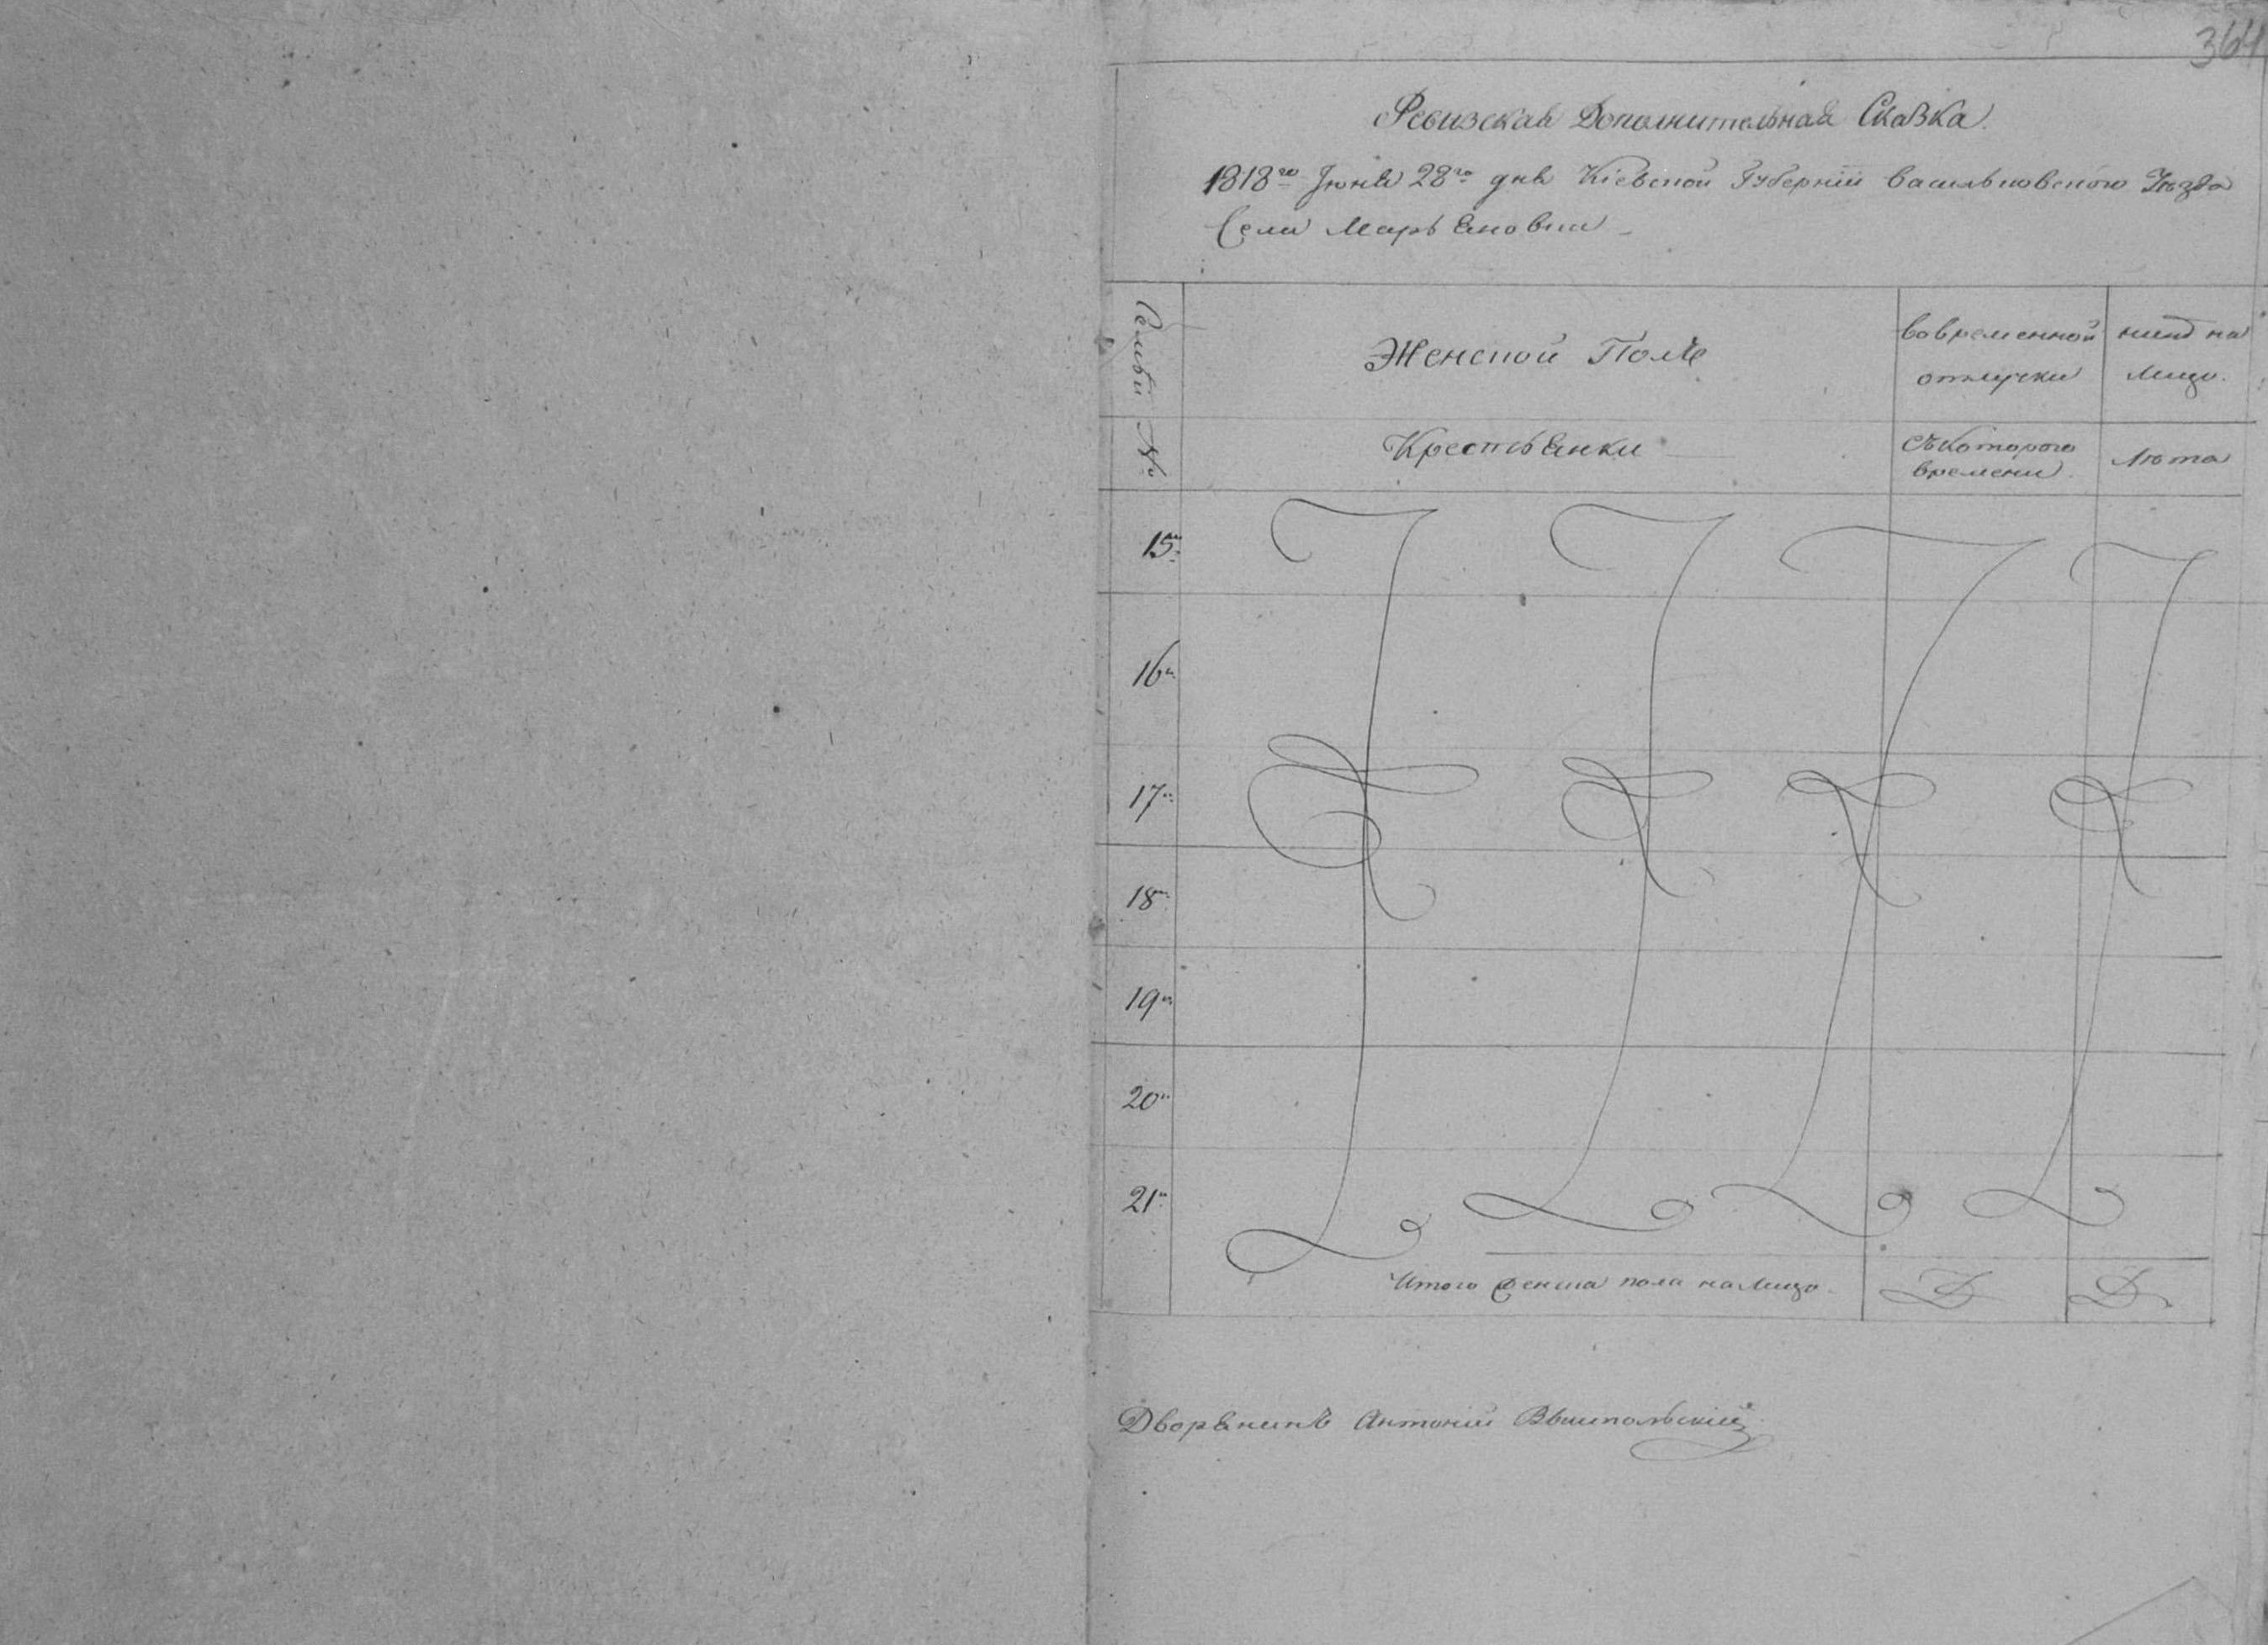 364
Ревизская Дополнительная Сказка.
1818го Июня 28го дня Кіевской Губерніи Васильковского Уѣзда
Села Марьяновки
Семьи №
Женской Полъ
вовременной отлучки
нинѣ на лицо.
Крестьянки
съкоторого времени.
лѣта
15
16
17
18
19
20
21
Итого женска пола налицо.
Дворянинъ Антоній